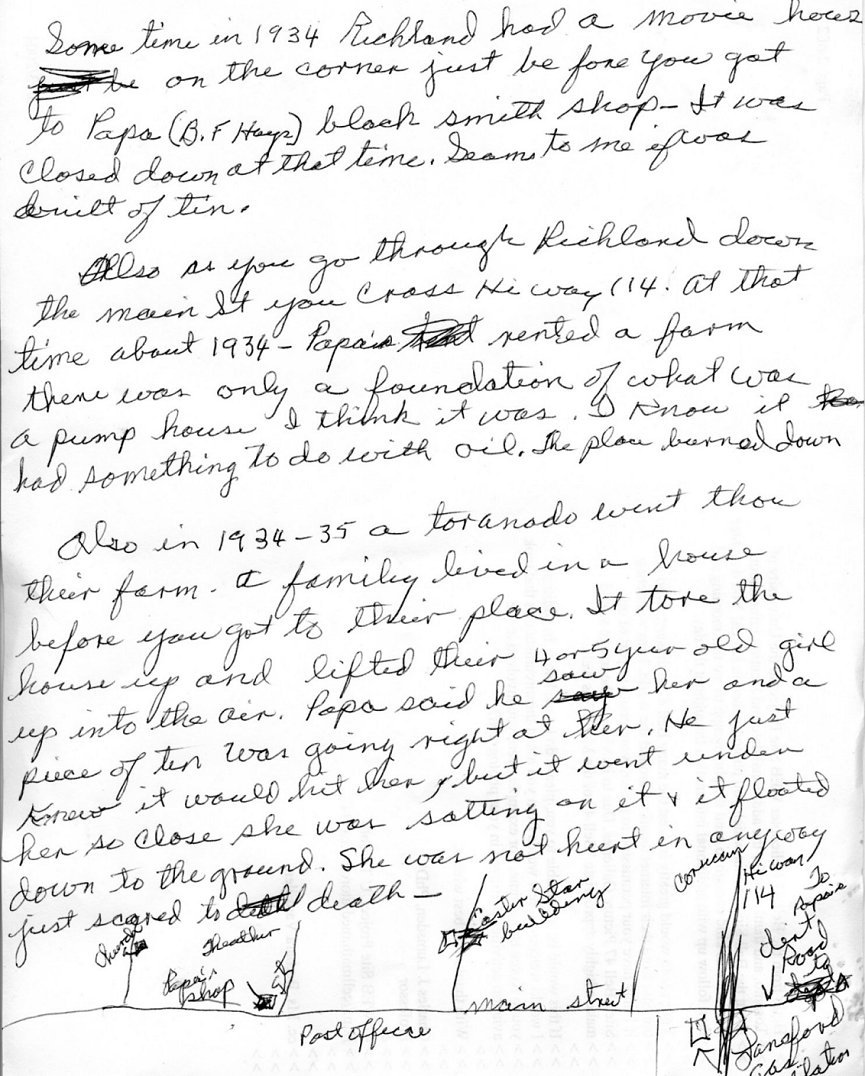 Some time in 1934 Richland had a movie hous
on the corner just be fore you got
to Papa (B.F Hays) black smith shop – It was
closed down at that time. Seams to me it was
built of tin.
Also as you go through Richland down
the main St you cross Hi way 114. At that
time about 1934 – Papa rented a farm
there was only a foundation of what was
a pump house I think it was. I know it
had something to do with oil. The place burned down
Also in 1934–35 a toranado went thou
their farm. A family lived in a house
before you got to their place. It tore the
house up and lifted their 4 or 5 year old girl
up into the air. Papa said he saw her and a
piece of ten was going right at her. He just
knew it would hit her, but it went under
her so close she was satting on it & it floated
down to the ground. She was not hurt in anyway
just scared to death –
Theather
Papa's
shop
Easter Star
building
Hi way
114
To
dirt
Road
to
main street
Post office
Lansford
Gas